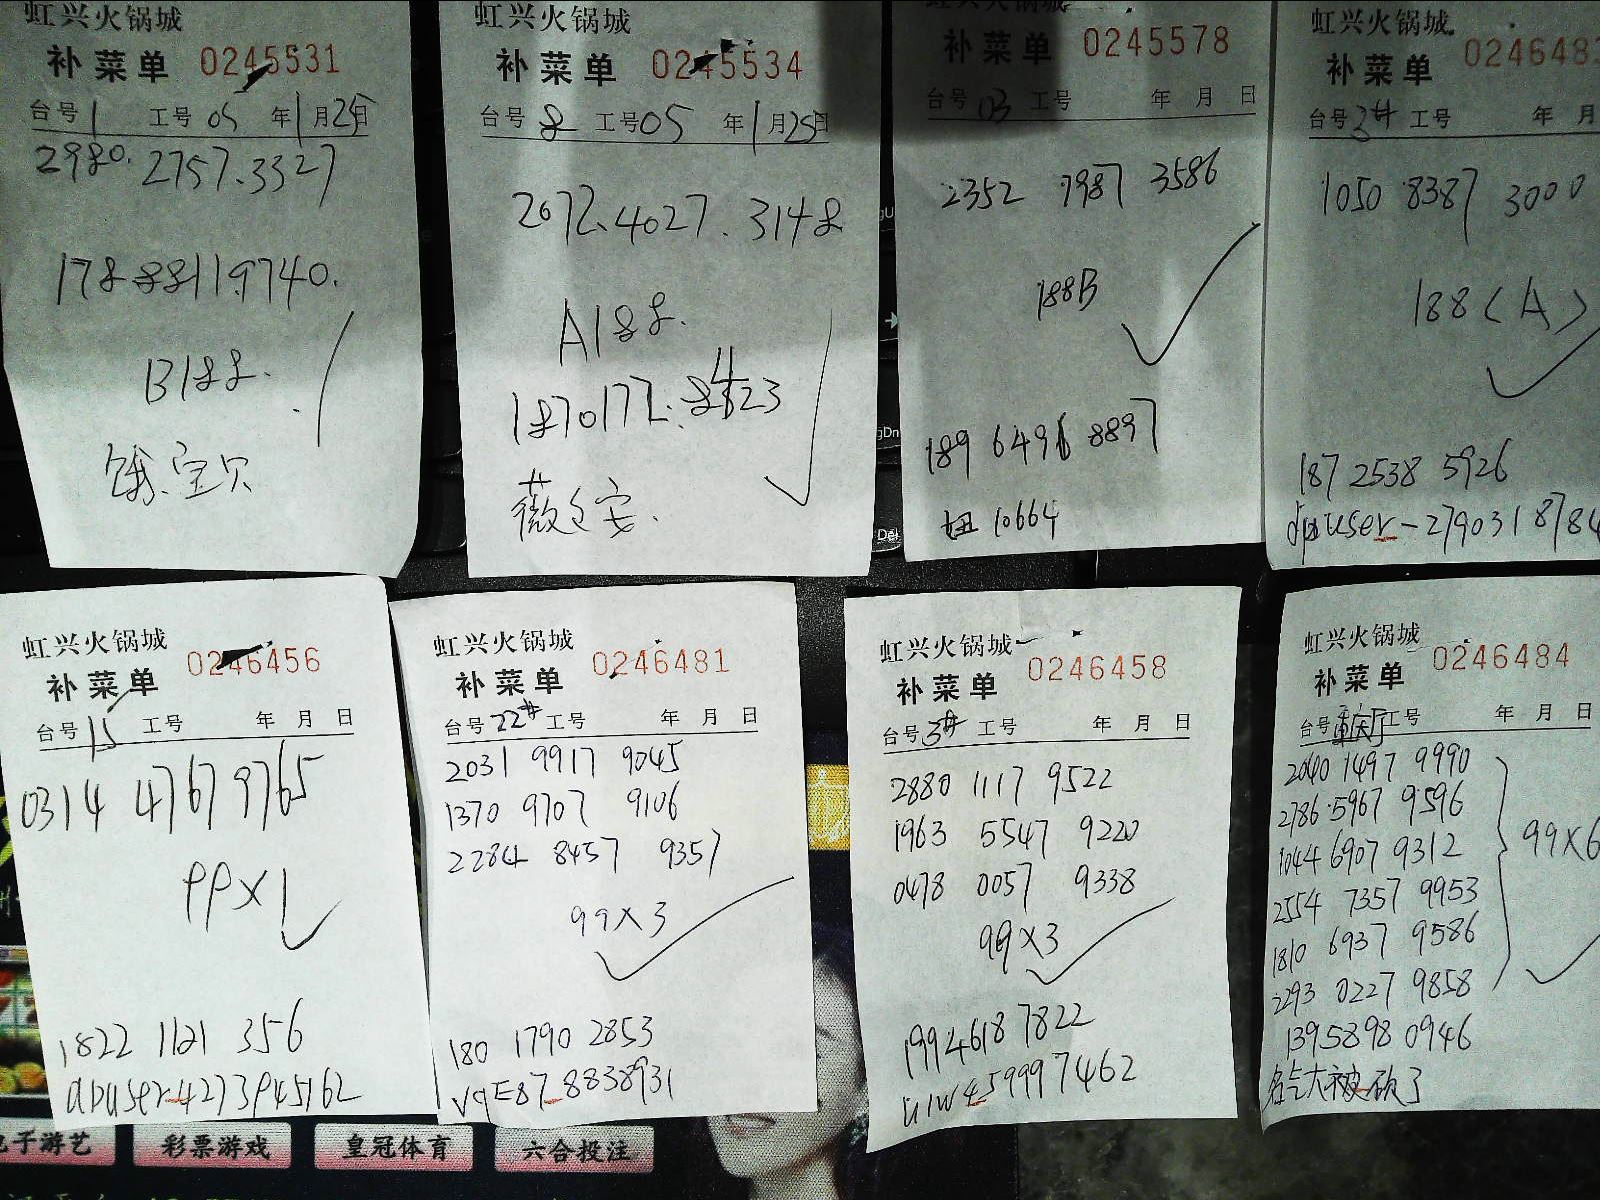 虹兴火锅城
补菜单 0245531
台号 1 工号 05 年 1 月 25 日
2980. 2757. 3327
178 88119740.
B188.
饿宝贝
虹兴火锅城
补菜单 0245534
台号 8 工号 05 年 1 月 25 日
2072. 4027. 3148
A188.
薇之安.
补菜单 0245578
台号 03 工号 年 月 日
2352 7987 3586
188B
189 6496 8897
10664
虹兴火锅城
补菜单 024648
台号 3# 工号 年 月
1050 8387 3000
188 (A)
187 2538 5926
dpuser-2790318784
虹兴火锅城
补菜单 0246456
台号 15 工号 年 月 日
0314 4767 9765
99×1
1822 1121 356
虹兴火锅城
补菜单 0246481
台号 22# 工号 年 月 日
2031 9917 9045
1370 9707 9106
2284 8457 9357
99×3
180 1790 2853
VqE87_8838931
虹兴火锅城
补菜单 0246458
台号 3# 工号 年 月 日
2880 1117 9522
1963 5547 9220
0478 0057 9338
99×3
199 4618 7822
虹兴火锅城
补菜单 0246484
台号 重庆厅 工号 年 月 日
2040 1497 9990
2786 5967 9596
1044 6907 9312
2554 7357 9953
1810 6937 9586
2293 0227 9858
99×6
139 5898 0946
名气大被砍了
电子游艺
彩票游戏
皇冠体育
六合投注
Del